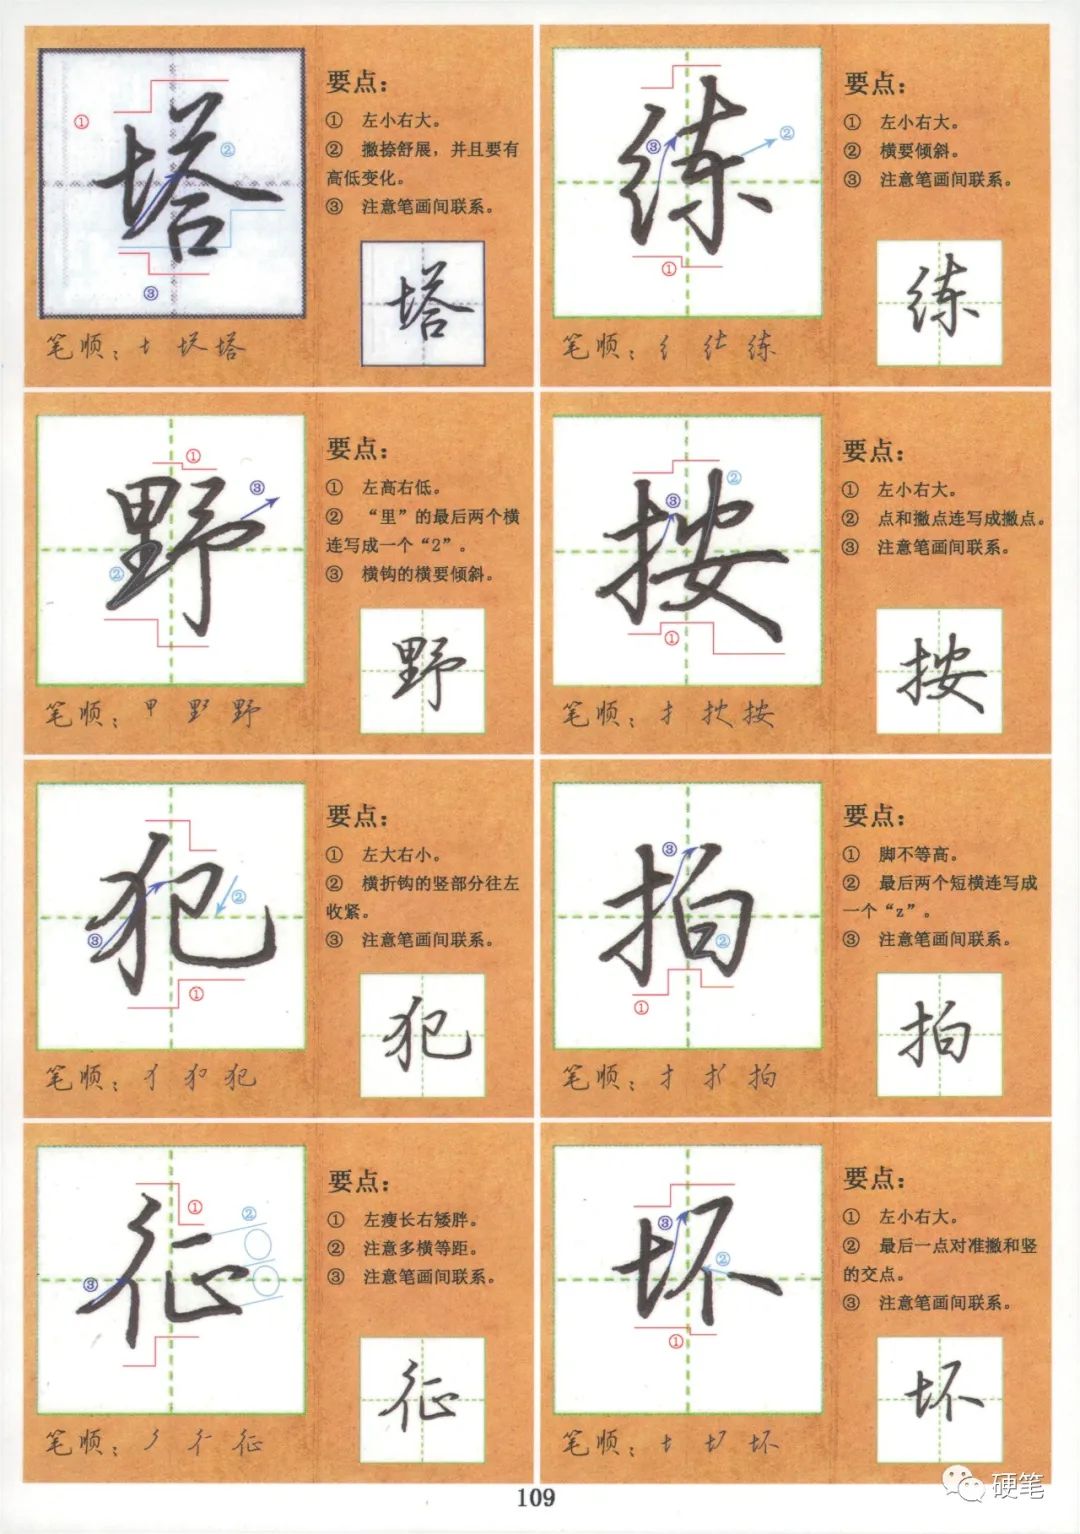 塔
①
②
③
要点：
① 左小右大。
② 撇捺舒展，并且要有
高低变化。
③ 注意笔画间联系。
塔
笔顺：𠄌 𡊨 塔
练
①
②
③
要点：
① 左小右大。
② 横要倾斜。
③ 注意笔画间联系。
练
笔顺：纟 练
野
①
②
③
要点：
① 左高右低。
② “里”的最后两个横
连写成一个“2”。
③ 横钩的横要倾斜。
野
笔顺：甲 野 野
按
①
②
③
要点：
① 左小右大。
② 点和撇点连写成撇点。
③ 注意笔画间联系。
按
笔顺：扌 按
犯
①
②
③
要点：
① 左大右小。
② 横折钩的竖部分往左
收紧。
③ 注意笔画间联系。
犯
笔顺：犭 犯
拍
①
②
③
要点：
① 脚不等高。
② 最后两个短横连写成
一个“z”。
③ 注意笔画间联系。
拍
笔顺：扌 拍
征
①
②
③
要点：
① 左瘦长右矮胖。
② 注意多横等距。
③ 注意笔画间联系。
征
笔顺：彳 征
坏
①
②
③
要点：
① 左小右大。
② 最后一点对准撇和竖
的交点。
③ 注意笔画间联系。
坏
笔顺：坏
109
硬笔